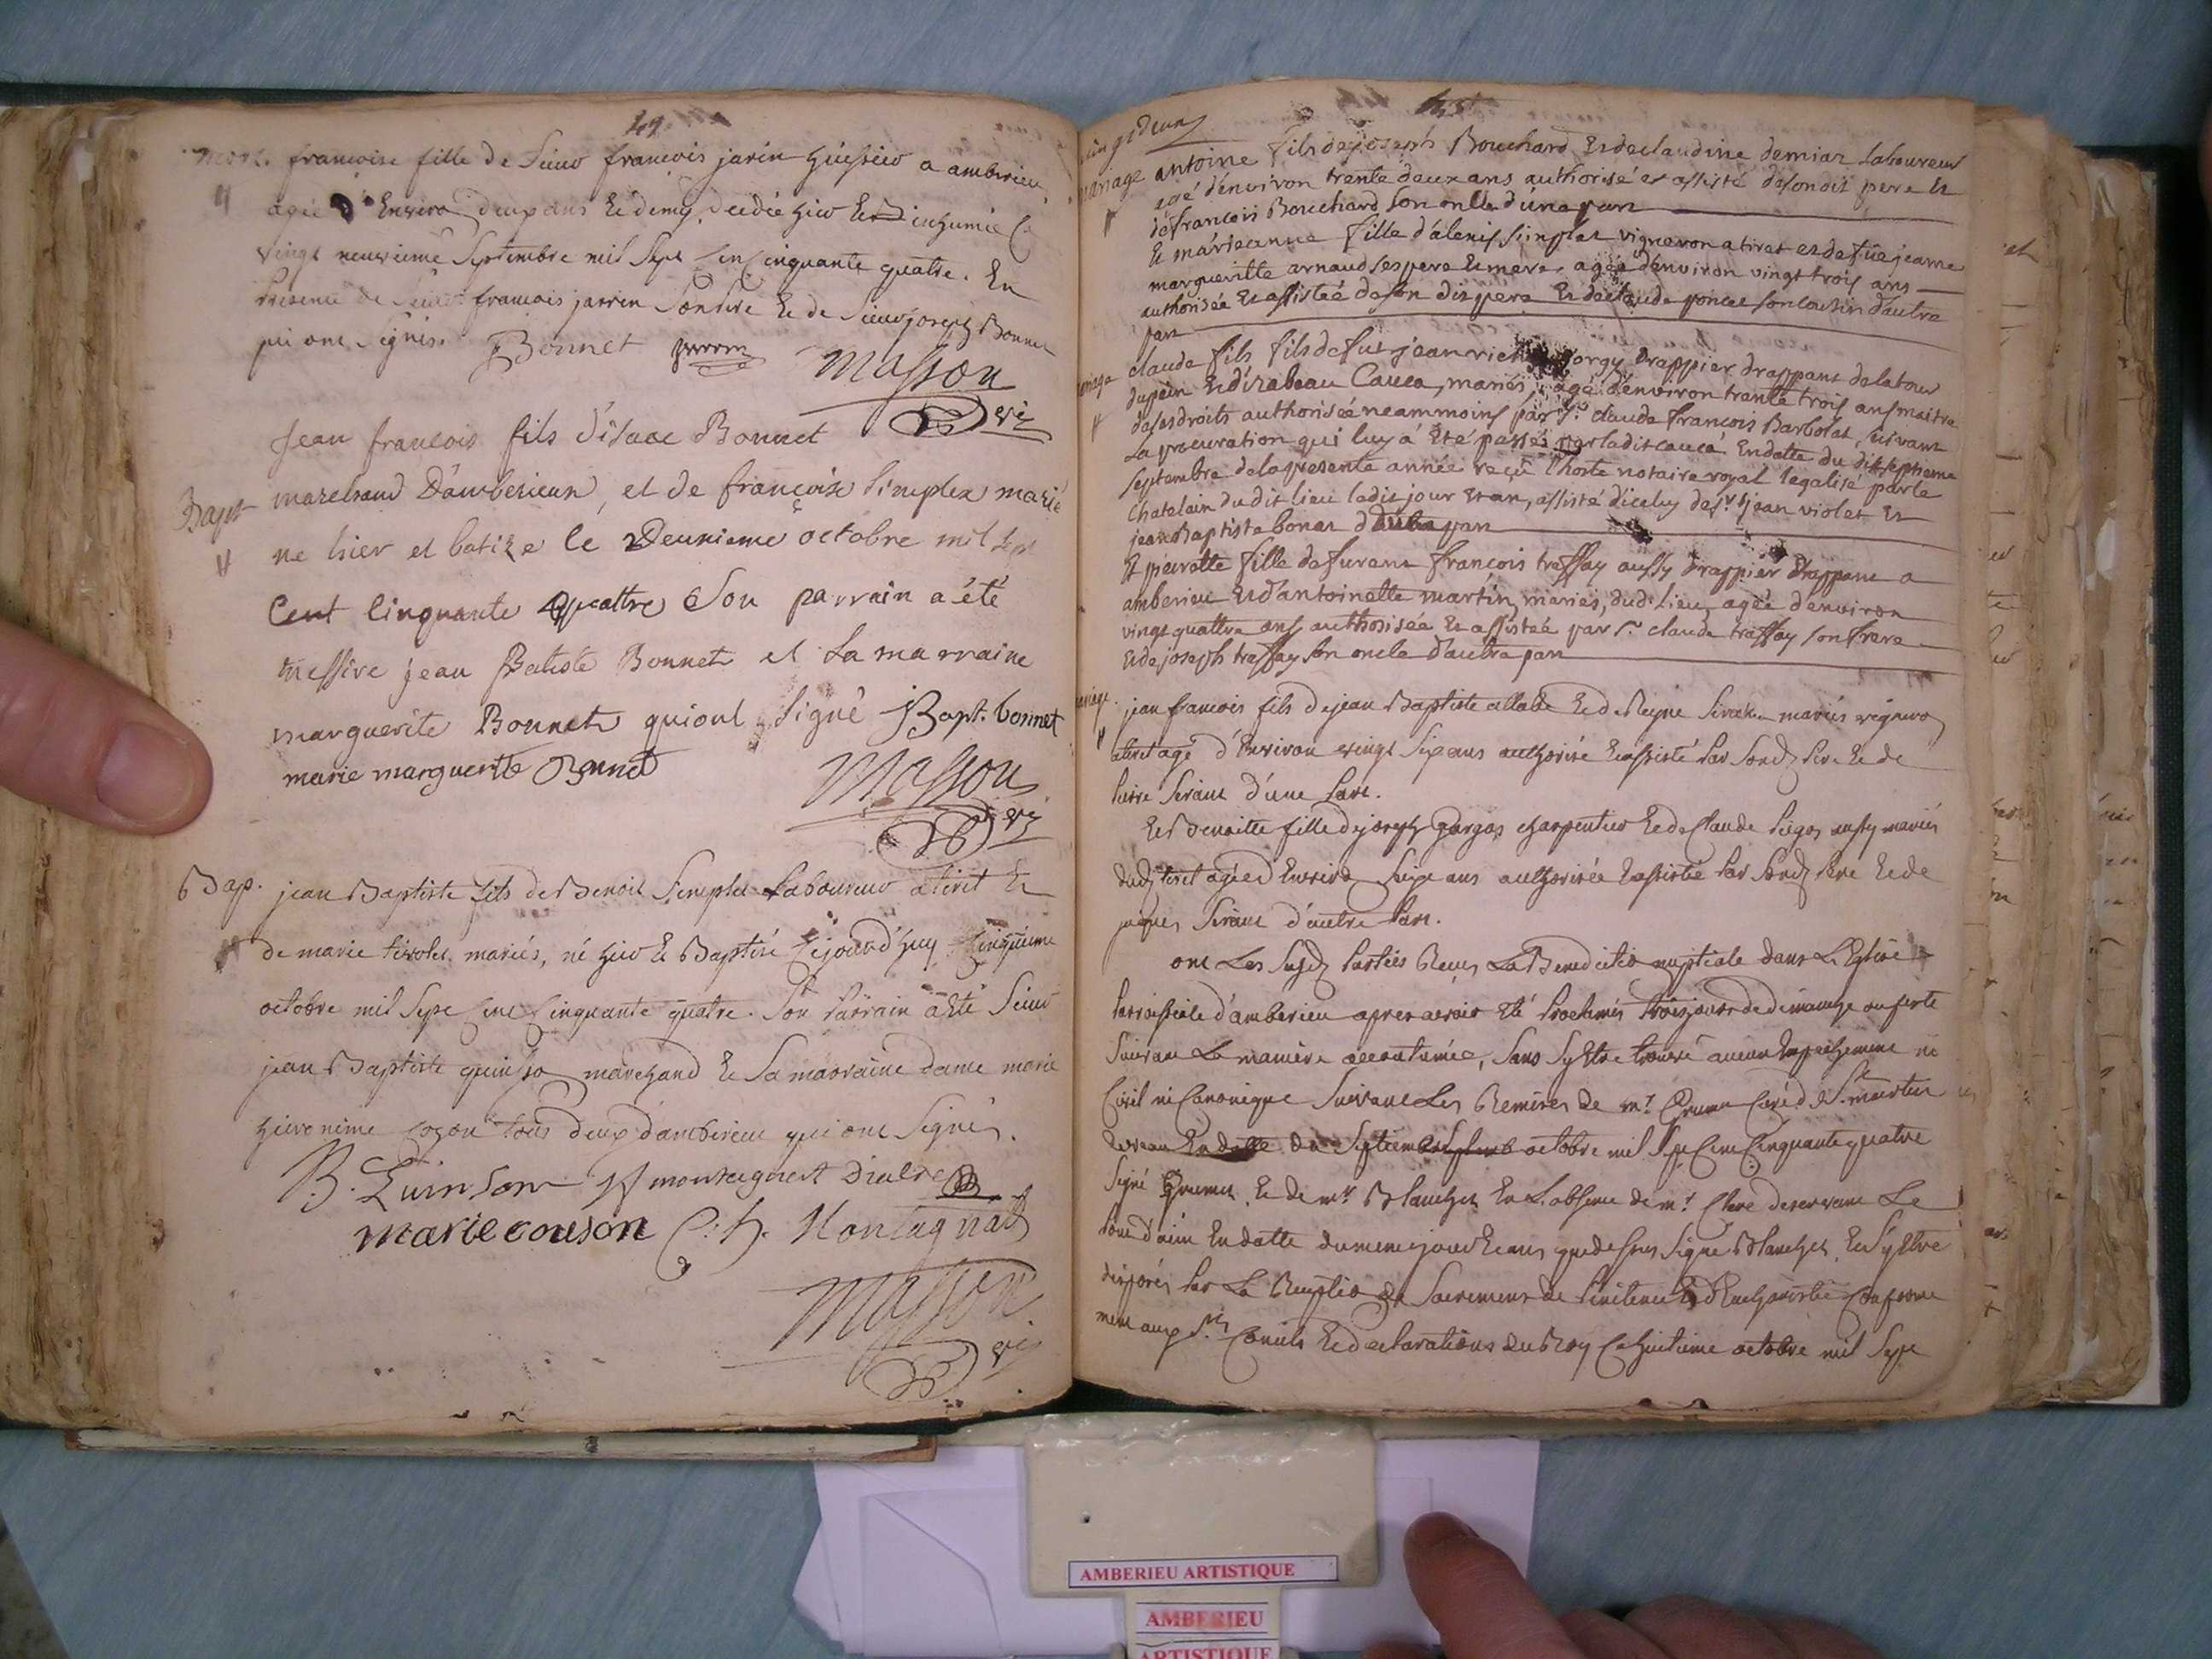 mort. francoise fille de Sieur francois jarin huissier a amberieu
agée d'Environ deux ans Et demy, decedée hier Et inhumée Ce
vingt neuvieme Septembre mil Sept Cent Cinquante quatre. En
presence de Sieur francois jarrin Son Pere Et de Sieur joseph Bonnet
qui ont Signés. Bonnet
Masson
vic
Jean francois fils d'isaac Bonnet
Bapt marchand D'amberieux, et de françoise Simplex marié
ne hier et batize le Deuxieme octobre mil sept
Cent Cinquante Quattre Son parrain a été
messire jean Batiste Bonnet et La marraine
marguerite Bonnet qui ont Signé J Bapt. bonnet
marie marguerite Bonnet
Masson
vic
Bap. jean Baptiste fils de Benoit Simplex Laboureur a tiret Et
de marie tirolet mariés, né hier Et Baptisé Cejourd'huy Cinquieme
octobre mil Sept Cent Cinquante quatre. Son Parrain a Eté Sieur
jean Baptiste quinson marchand Et Sa marraine dame marie
hieronime cozon tous deux d'amberieu qui ont Signés.
B. Quinson montagnat
marie couson C. h. Montagnat
Masson
vic
45
mariage antoine fils de joseph Bouchard Et de claudine demiaz laboureur
agé d'énviron trente deux ans authorisé et assisté de son dit pere Et
de francois Bouchard son oncle d'une part
Et marieanne fille d'alexis simplex vigneron a tiret et de fue jeanne
margueritte arnaud ses pere Et mere, agée d'environ vingt trois ans
authorisée Et assistée de son dit pere Et de claude poncet son cousin d'autre
part
mariage claude fils fils de fut jean drappier drappant de la tour
du pin Et d'izabeau Cauca, mariés, agé d'environ trente trois ans maitre
de ses droits authorisée neammoins par Sr. claude francois Barbolat, suivant
La procuration qui luy a Eté passée par ladit cauca Endatte du dixseptieme
Septembre de la presente année reçû l'hoste notaire royal legalisé par le
Chatelain du dit lieu ledit jour Et an, assisté diceluy de Sr. jean violet Et
jean Baptiste bonet d'une part
Et pierrette fille de furent francois treffay aussy drappier drappant a
amberieu Et d'antoinette martin mariés, dud. Lieu agée d'environ
vingt quattre ans authorisée Et assistée par Sr. claude treffay son frere
Et de joseph treffay son oncle d'autre part
mariage jean francois fils de jean Baptiste allabe Et de Reyne mariés vigneron
a tiret agé d'Environ vingt Six ans authorisé Et assisté Par Sond. Pere Et de
d'une Part.
Et Benoitte fille de joseph Gargas charpentier Et de Claude aussy mariés
dud. tiret agée d'Environ Seize ans authorisée Et assistée Par Sond. Pere Et de
jaques d'autre Part.
ont Les Susd. Parties Receu La Benediction nuptiale dans L'Eglise
Parroissiale d'amberieu apres avoir Eté Proclamés trois jours de dimanche ou feste
Suivant La maniere accoutumée, Sans S'y Etre trouvé aucun Empechement ni
Civil ni Canonique Suivant Les Remises de mr. Curé de St. martin
Endatte du Sept octobre mil Sept Cent Cinquante quatre
Signé Et de mr. Blanchet En L'absence de mr. Clerc deservant La
tour d'ain En datte du meme jour Et an que dessus Signé Blanchet, Et S'y Etre
disposés Par La Reception des Sacremens de Penitence Et d'Eucharistie Conforme
ment aux Sts. Conciles Et declarations du Roy Ce huitieme octobre mil Sept
AMBERIEU ARTISTIQUE
AMBERIEU
ARTISTIQUE